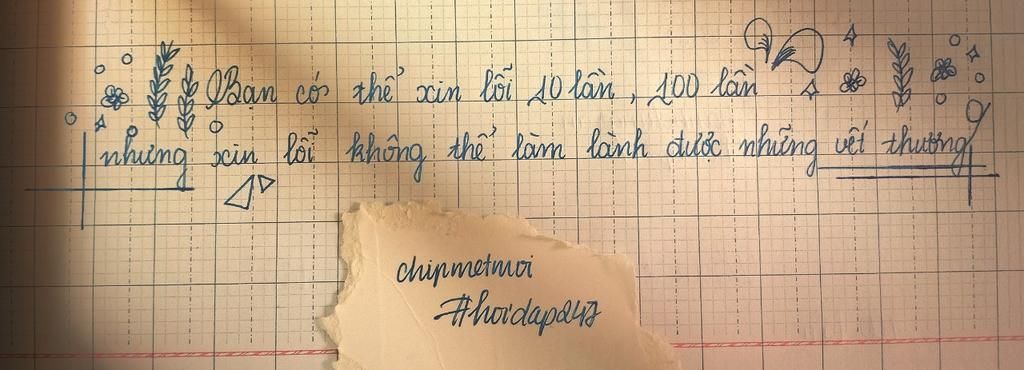 Bạn có thể xin lỗi 10 lần, 100 lần
nhưng xin lỗi không thể làm lành được những vết thương
chipmetmoi
#hoidap247